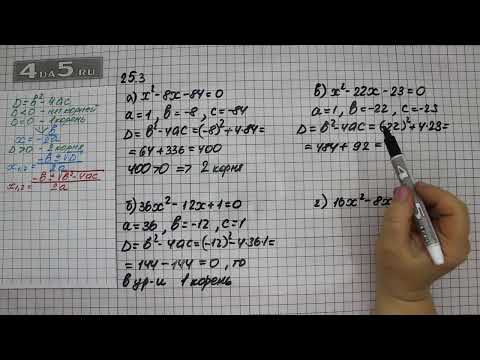 4DA5.RU
D = b² - 4ac
D < 0 - нет корней
D = 0 - 1 корень
x = -b/2a
D > 0 - 2 корня
x₁,₂ = (-b ± √D)/2a
x₁,₂ = (-b ± √b² - 4ac)/2a
25.3
а) x² - 8x - 84 = 0
a = 1, b = -8, c = -84
D = b² - 4ac = (-8)² + 4·84 =
= 64 + 336 = 400
400 > 0 => 2 корня
б) 36x² - 12x + 1 = 0
a = 36, b = -12, c = 1
D = b² - 4ac = (-12)² - 4·36·1 =
= 144 - 144 = 0, то
в ур-и 1 корень
в) x² - 22x - 23 = 0
a = 1, b = -22, c = -23
D = b² - 4ac = (-22)² + 4·23 =
= 484 + 92 =
г) 16x² - 8x